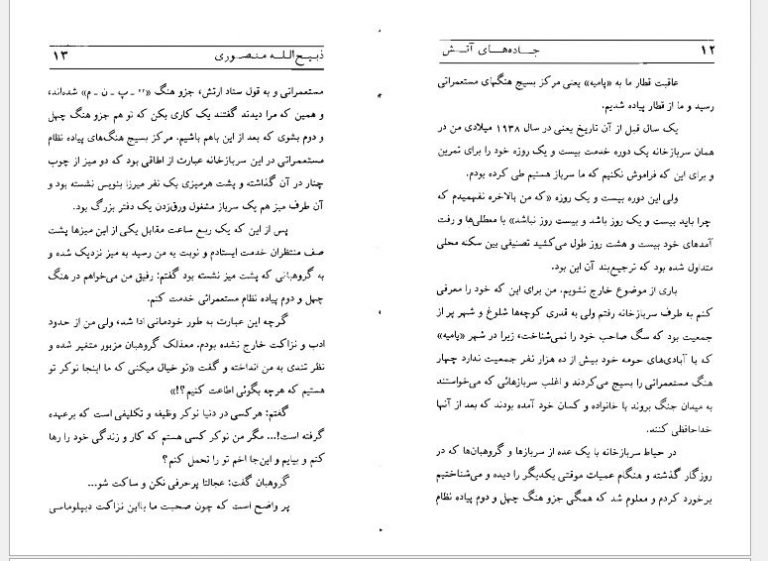 ۱۲ جاده‌های آتش
عاقبت قطار ما به «پامیه» یعنی مرکز بسیج هنگهای مستعمراتی
رسید و ما از قطار پیاده شدیم.
یک سال قبل از آن تاریخ یعنی در سال ۱۹۳۸ میلادی من در
همان سربازخانه یک دوره خدمت بیست و یک روزه خود را برای تمرین
و برای این که فراموش نکنیم که ما سرباز هستیم طی کرده بودم.
ولی این دوره بیست و یک روزه «که من بالاخره نفهمیدم که
چرا باید بیست و یک روز باشد و بیست روز نباشد» با معطلی‌ها و رفت
آمدهای خود بیست و هشت روز طول می‌کشید تصنیفی بین سکنه محلی
متداول شده بود که ترجیع‌بند آن این بود.
باری از موضوع خارج نشویم. من برای این که خود را معرفی
کنم به طرف سربازخانه رفتم ولی به قدری کوچه‌ها شلوغ و شهر پر از
جمعیت بود که سگ صاحب خود را نمی‌شناخت، زیرا در شهر «پامیه»
که با آبادی‌های حومه خود بیش از ده هزار نفر جمعیت ندارد چهار
هنگ مستعمراتی را بسیج می‌کردند و اغلب سربازهائی که می‌خواستند
به میدان جنگ بروند با خانواده و کسان خود آمده بودند که بعد از آنها
خداحافظی کنند.
در حیاط سربازخانه با یک عده از سربازها و گروهبان‌ها که در
روزگار گذشته و هنگام عمیات موقتی یکدیگر را دیده و می‌شناختیم
برخورد کردم و معلوم شد که همگی جزو هنگ چهل و دوم پیاده نظام
ذبیح‌الله منصوری ۱۳
مستعمراتی و به قول ستاد ارتش، جزو هنگ « - پ - ن - م» شده‌اند،
و همین که مرا دیدند گفتند یک کاری بکن که تو هم جزو هنگ چهل
و دوم بشوی که بعد از این باهم باشیم. مرکز بسیج هنگ‌های پیاده نظام
مستعمراتی در این سربازخانه عبارت از اطاقی بود که دو میز از چوب
چنار در آن گذاشته و پشت هرمیزی یک نفر میرزا بنویس نشسته بود و
آن طرف میز هم یک سرباز مشغول ورق‌زدن یک دفتر بزرگ بود.
پس از این که یک ربع ساعت مقابل یکی از این میزها پشت
صف منتظران خدمت ایستادم و نوبت به من رسید به میز نزدیک شده و
به گروهبانی که پشت میز نشسته بود گفتم: رفیق من می‌خواهم در هنگ
چهل و دوم پیاده نظام مستعمراتی خدمت کنم.
گرچه این عبارت به طور خودمانی ادا شد، ولی من از حدود
ادب و نزاکت خارج نشده بودم. معذلک گروهبان مزبور متغیر شده و
نظر تندی به من انداخته و گفت «تو خیال میکنی که ما اینجا نوکر تو
هستیم که هرچه بگوئی اطاعت کنیم؟!»
گفتم: هرکسی در دنیا نوکر وظیفه و تکلیفی است که برعهده
گرفته است!... مگر من نوکر کسی هستم که کار و زندگی خود را رها
کنم و بیایم و این‌جا اخم تو را تحمل کنم؟
گروهبان گفت: عجالتا پرحرفی نکن و ساکت شو...
پر واضح است که چون صحبت ما بااین نزاکت دیپلوماسی